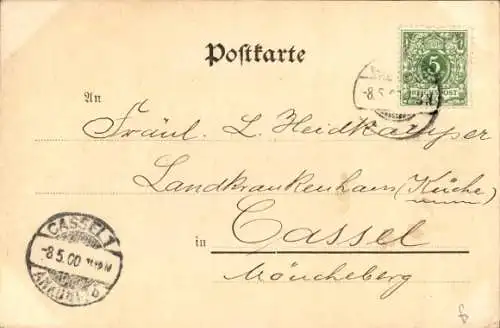 Postkarte
5
REICHSPOST
-8.5.00
An
Fräul. L. Heidkamper
Landkrankenhaus (Küche)
in Cassel
Möncheberg
CASSEL 1
-8.5.00